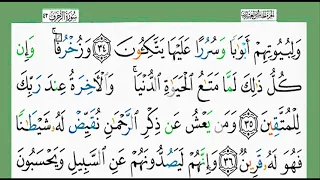 سورة الزخرف ٤٣
وَلِبُيُوتِهِمْ أَبْوَٰبًا وَسُرُرًا عَلَيْهَا يَتَّكِـُٔونَ ٣٤ وَزُخْرُفًا ۚ وَإِن
كُلُّ ذَٰلِكَ لَمَّا مَتَٰعُ الْحَيَوٰةِ الدُّنْيَا ۚ وَالْءَاخِرَةُ عِندَ رَبِّكَ
لِلْمُتَّقِينَ ٣٥ وَمَن يَعْشُ عَن ذِكْرِ الرَّحْمَٰنِ نُقَيِّضْ لَهُۥ شَيْطَٰنًا
فَهُوَ لَهُۥ قَرِينٌ ٣٦ وَإِنَّهُمْ لَيَصُدُّونَهُمْ عَنِ السَّبِيلِ وَيَحْسَبُونَ